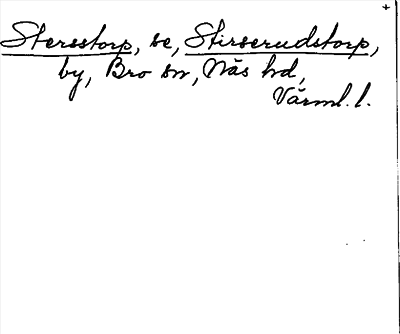 Stersstorp, se, Stirserudstorp,
by, Bro sn, Näs hd,
Värml. l.